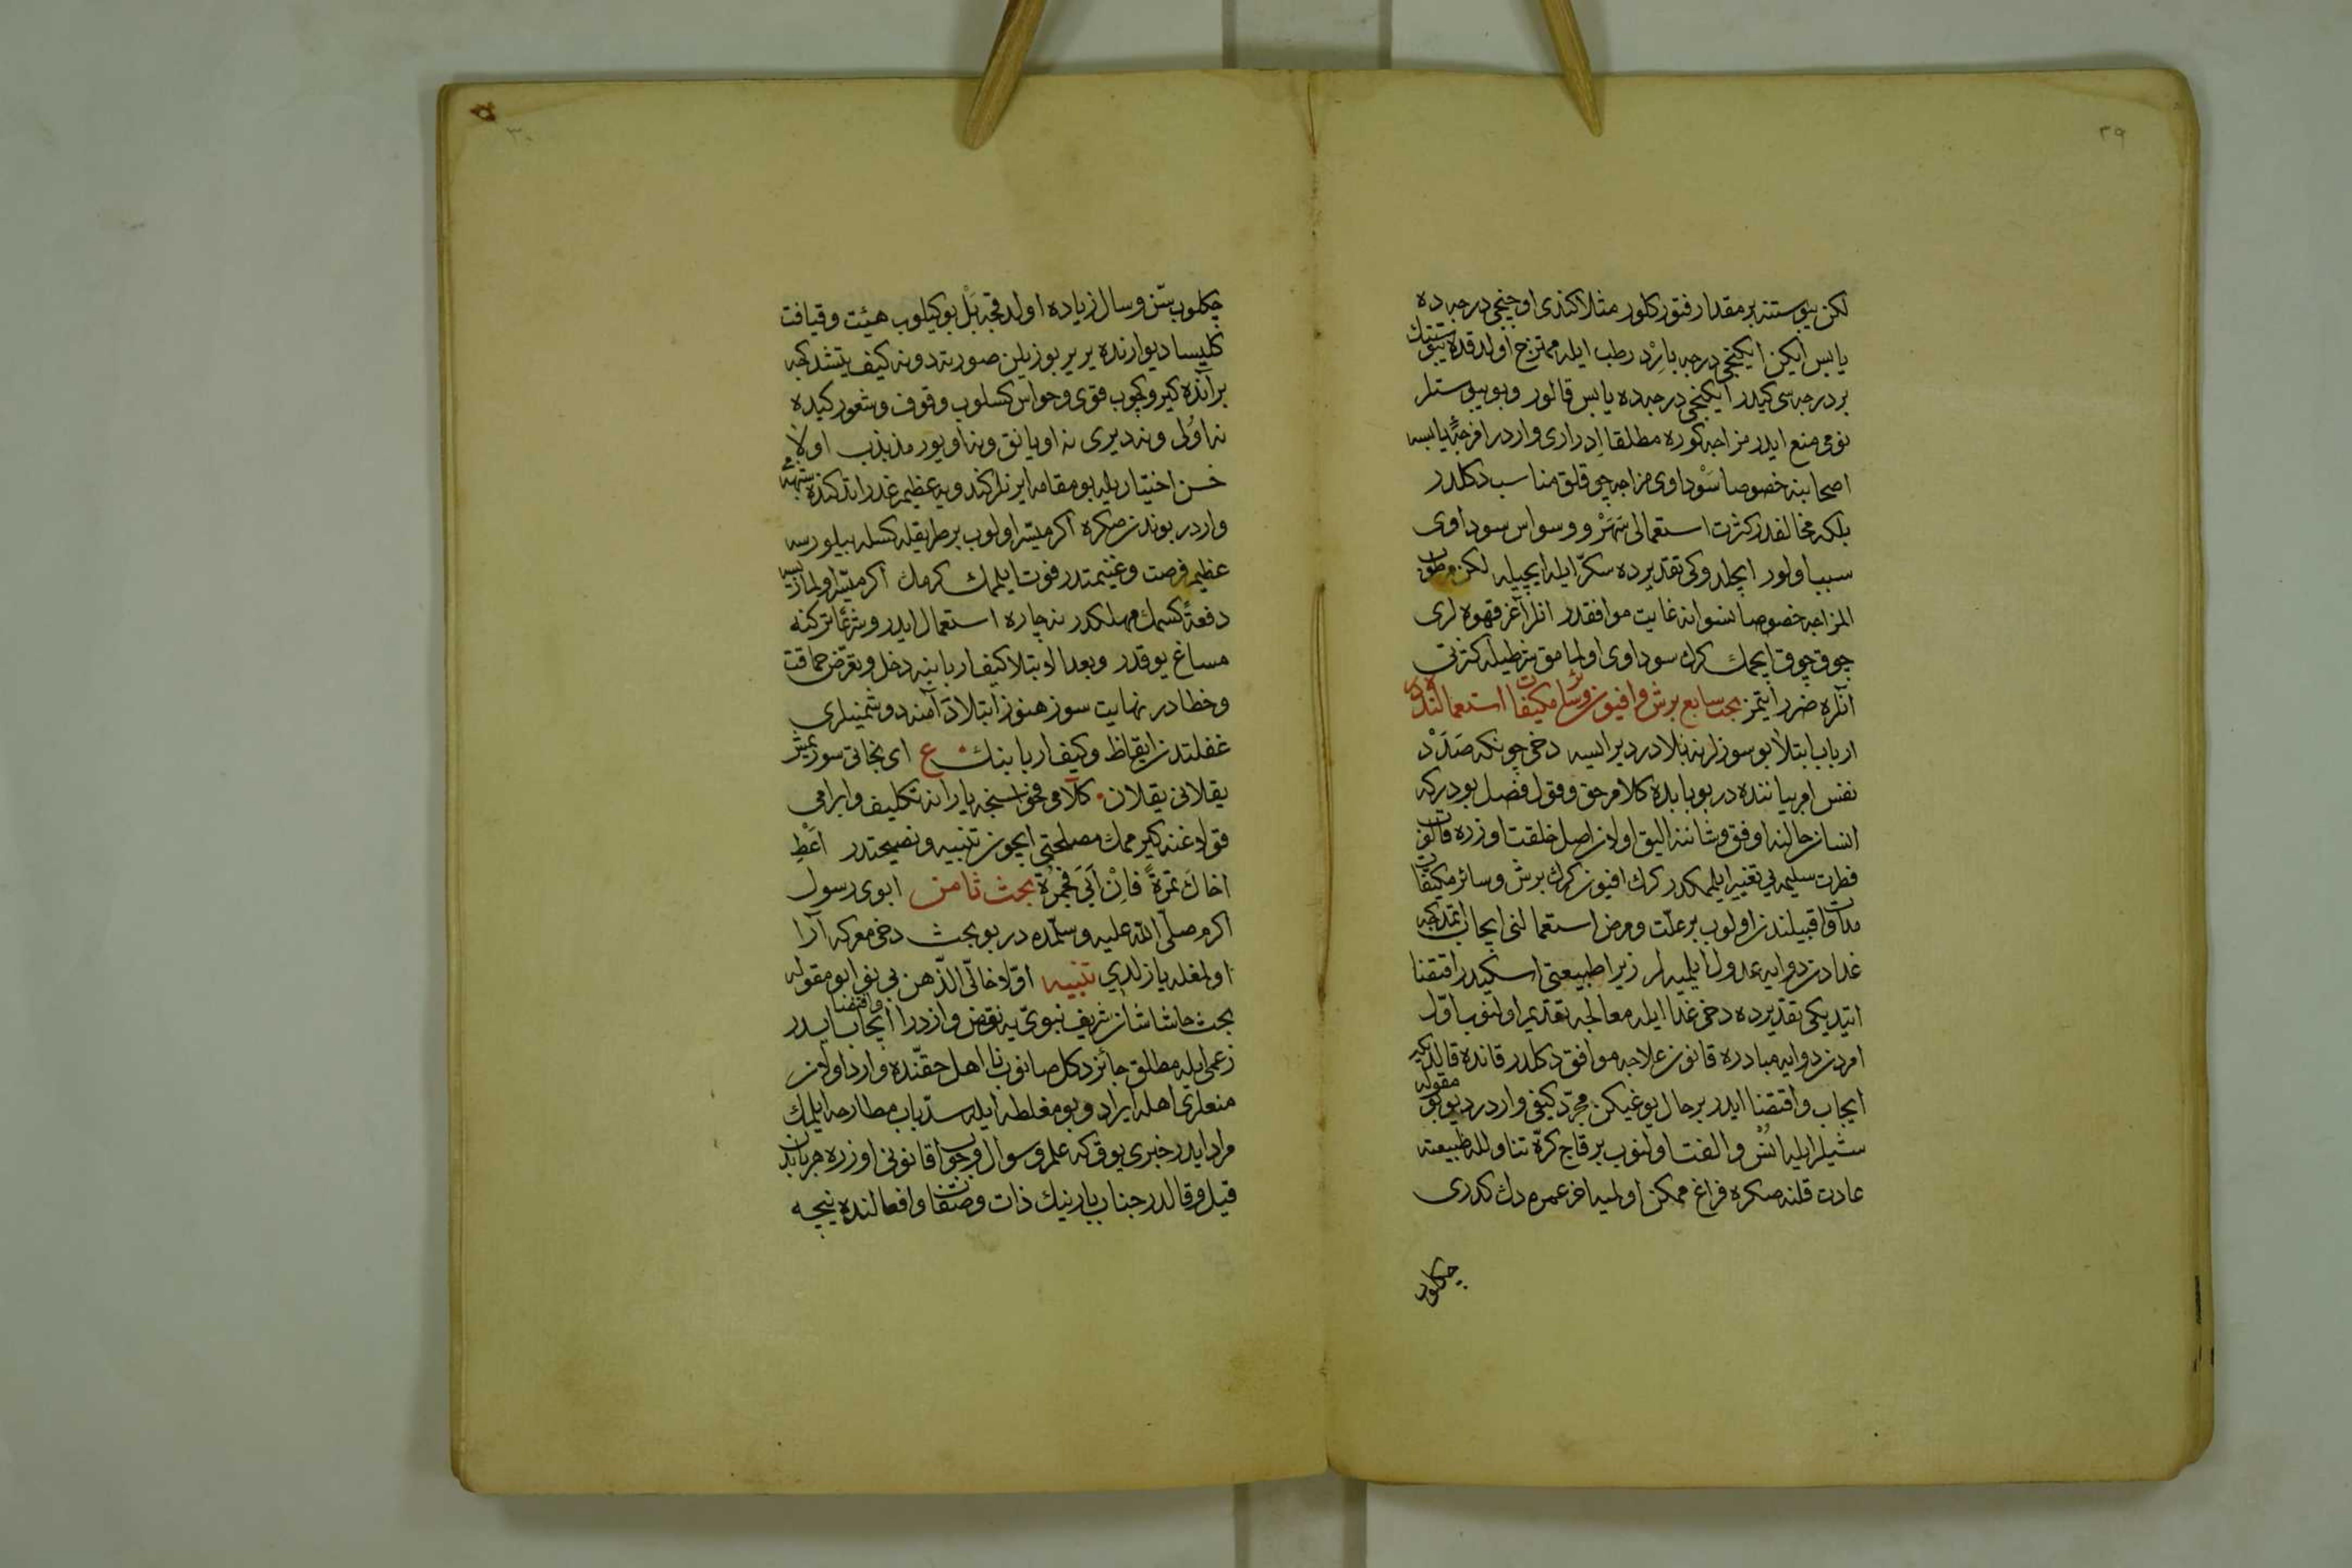 ۲۹
لكن يبوستنه بر مقدار فتور كلور مثلا كندى اوچنجى درجه ده
يابس ايكن ايكنجى درجه بارد رطب ايله ممتزج اولدقده يبوستنك
بر درجه سى كيدر ايكنجى درجه ده يابس قالور وبو يبوستلر
نومى منع ايدر مزاجه كوره مطلقا ادرارى واردر امزجهٔ يابسه
اصحابنه خصوصا سوداوى مزاجه چوقلق مناسب دكلدر
بلكه مخالفدر كثرت استعمالى سهر و وسواس سوداوى
سبب اولور ايچلدوكى تقديرده سكر ايله ايچيله لكن مرطوب
المزاجه خصوصا نسوانه غايت موافقدر انلر آغر قهوه لرى
چوق چوق ايچمك كرك سوداوى اولمامق شرطيله كثرتى
آنلره ضرر ايتمز بحث سابع برش وافيون وسائر مكيفات استعمالنده در
ارباب ابتلا بو سوزلر نه بلادر ديرلرسه دخى چونكه صدد
نفس امر بياننده در بو بابده كلام حق وقول فصل بودركه
انسان حالنه اوفق وشاننه اليق اولان اصل خلقت اوزره قالوب
فطرت سليمه يى تغيير ايلمكدر كرك افيون كرك برش وسائر مكيفات
مداوات قبيلندن اولوب بر علت ومرض استعمالنى ايجاب ايتمدكجه
غدادن دوايه عدول ايلميه لر زيرا طبيعتى اسكيدر اقتضا
ايتديكى تقديرده دخى غدا ايله معالجه تقديم اولنوب اول
امردن دوايه مبادره قانون علاجه موافق دكلدر قانده قالديكه
ايجاب واقتضا ايدر بر حال يوغيكن مجرد كيفى واردر ديو بو مقوله
شيلر ايله انس والفت اولنوب بر قاج كره تناول له طبيعته
عادت قلنه صكره فراغ ممكن اولميه اخر عمره دك كدرى
چكلوب
۳۰
چكلوب سن وسال زياده اولدقجه بل بوكيلوب هيئت وقيافت
كليسا ديوارنده يريريوزيلن صورته دونه كيف يتشدكجه
بر آنده كيروكچوب قوى وحواس كسلوب وقوف وشعور كيده
نه اولى ونه ديرى نه اويانق ونه اويور مذبذب اولا
حسن اختياريله بو مقامه ايرنلر كندويه عظيم غدر ايتدكنده شبهه مى
واردر بوندن صكره اكر ميسر اولوب بر طريقله كسله بيلورسه
عظيم فرصت وغنيمتدر فوت ايلمامك كرك اكر ميسر اولمازيسه
دفعةً كسمك مهلكدر نه چاره استعمال ايدر وشرعًا تركنه
مساغ يوقدر وبعد الابتلا كيف اربابنه دخل وتعرض حماقت
وخطادر نهايت سوز هنوز ابتلادن آمنه دوشمينلرى
غفلتدن ايقاظ وكيف اربابنك ع اى نجاتى سوريتشر
يقلانى يقلان كلامى فحواسنجه يارانه تكليف وابرامى
قولاغنه كيرممك مصلحتى ايچون تنبيه ونصيحتدر اعط
اخاك تمرةً فان ابى فجمرة بحث ثامن ابوى رسول
اكرم صلّى الله عليه وسلّمده در بو بحث دخى معركه آرا
اولمغله يازلدى تنبيه اولا خالى الذهن بى نوا بو مقوله
بحث حاشا شان شريف نبوى يه نقص وازدرا ايجاب واقتضا ايدر
زعمى ايله مطلق جائز دكل صانوب نااهل حقنده وارد اولان
منعلرى اهله ايراد وبو مغلطه ايله سد باب مطارحه ايلمك
مراد ايدر خبرى يوق كه علم وسوال وجواب قانونى اوزره هر بابدن
قيل وقالدر جناب بارينك ذات وصفات وافعالنده نيچه